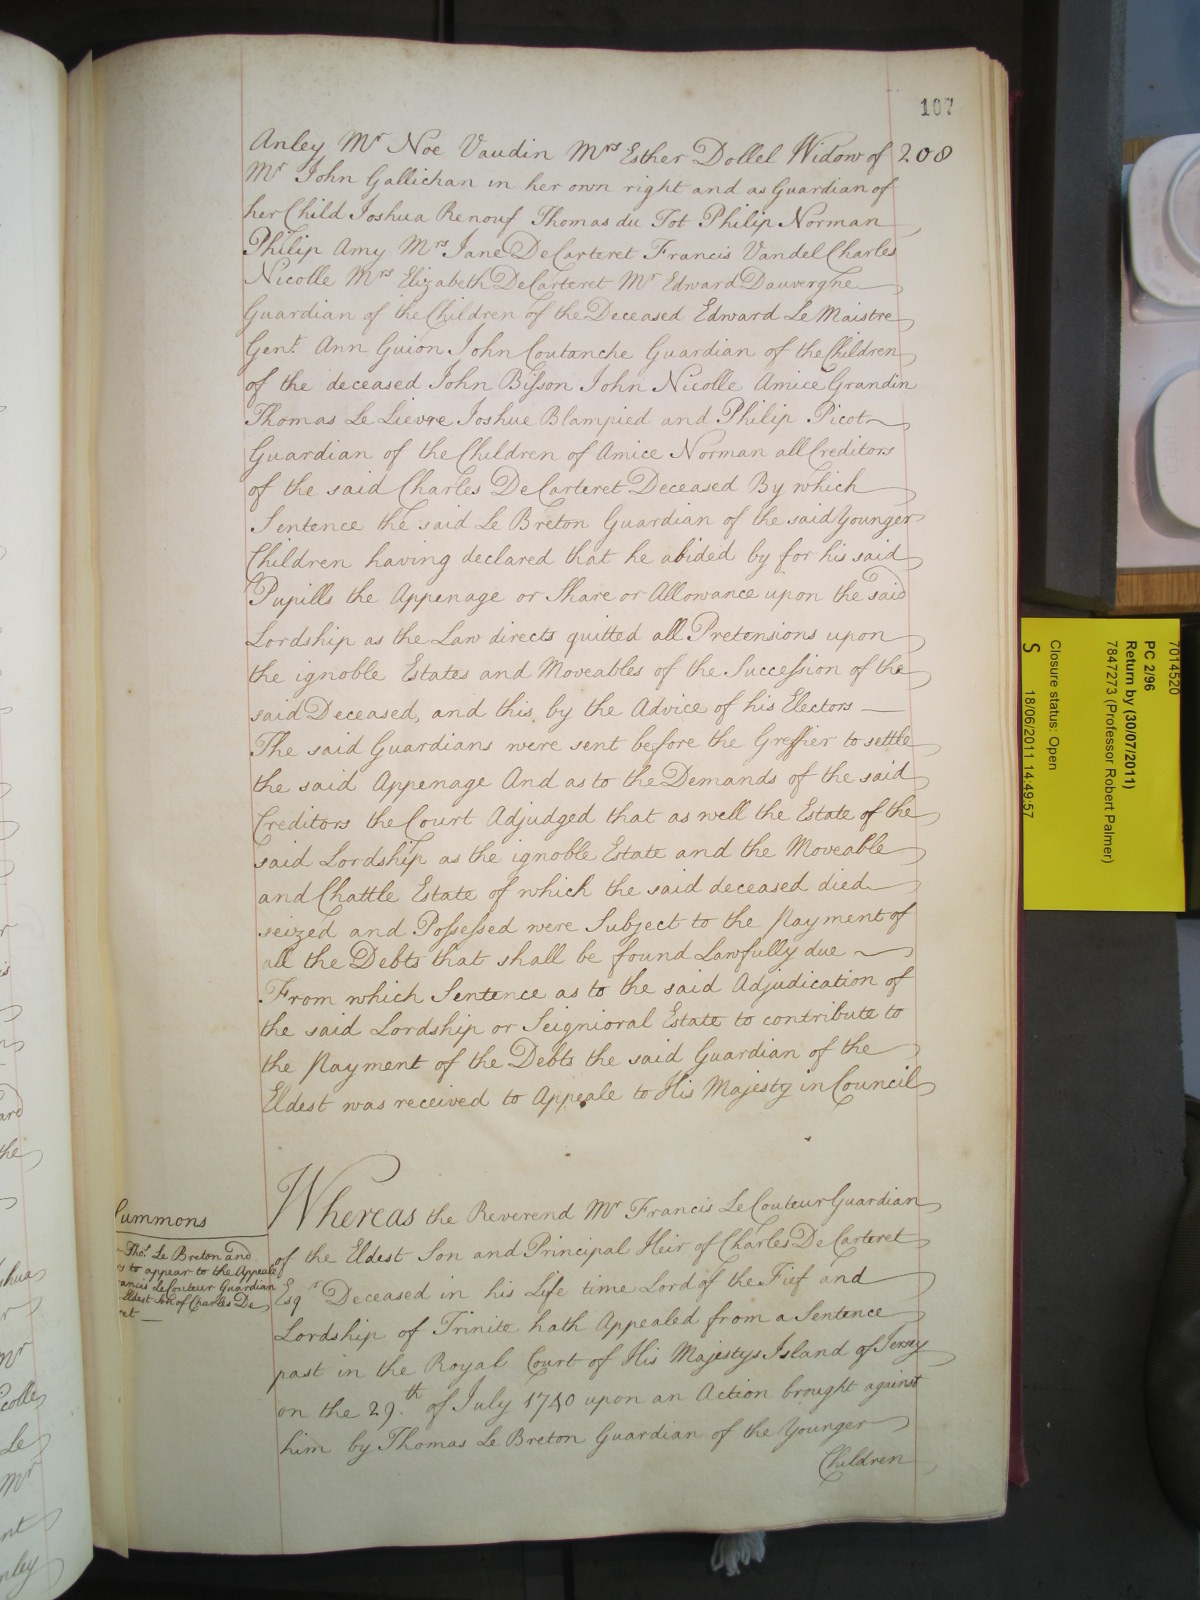 107
208
Anley Mr Noe Vaudin Mrs Esther Dollel Widow of
Mr John Gallichan in her own right and as Guardian of
her Child Joshua Renouf Thomas du Tot Philip Norman
Philip Amy Mrs Jane De Carteret Francis Vandel Charles
Nicolle Mrs Elizabeth De Carteret Mr Edward Dauvergne
Guardian of the Children of the Deceased Edward Le Maistre
Gent. Ann Guion John Coutanche Guardian of the Children
of the deceased John Bisson John Nicolle Amice Grandin
Thomas Le Lievre Joshue Blampied and Philip Picot
Guardian of the Children of Amice Norman all Creditors
of the said Charles De Carteret Deceased By which
Sentence the said Le Breton Guardian of the said Younger
Children having declared that he abided by for his said
Pupills the Appenage or Share or Allowance upon the said
Lordship as the Law directs quitted all Pretensions upon
the ignoble Estates and Moveables of the Succession of the
said Deceased, and this by the Advice of his Electors —
The said Guardians were sent before the Greffier to settle
the said Appenage And as to the Demands of the said
Creditors the Court Adjudged that as well the Estate of the
said Lordship as the ignoble Estate and the Moveable
and Chattle Estate of which the said deceased died
seized and Possessed were Subject to the Payment of
all the Debts that shall be found Lawfully due
From which Sentence as to the said Adjudication of
the said Lordship or Seignioral Estate to contribute to
the Payment of the Debts the said Guardian of the
Eldest was received to Appeale to His Majesty in Council
Summons
Thos. Le Breton and
to appear to the Appeale
Francis LeCouteur Guardian
Eldest Son of Charles De
ret —
Whereas the Reverend Mr Francis Le Couteur Guardian
of the Eldest Son and Principal Heir of Charles De Carteret
Esqr Deceased in his Life time Lord of the Fief and
Lordship of Trinite hath Appealed from a Sentence
past in the Royal Court of His Majestys Island of Jersey
on the 29th. of July 1740 upon an Action brought against
him by Thomas Le Breton Guardian of the Younger
Children
7014520
PC 2/96
Return by (30/07/2011)
7847273 (Professor Robert Palmer)
Closure status: Open
S 18/06/2011 14:49:57